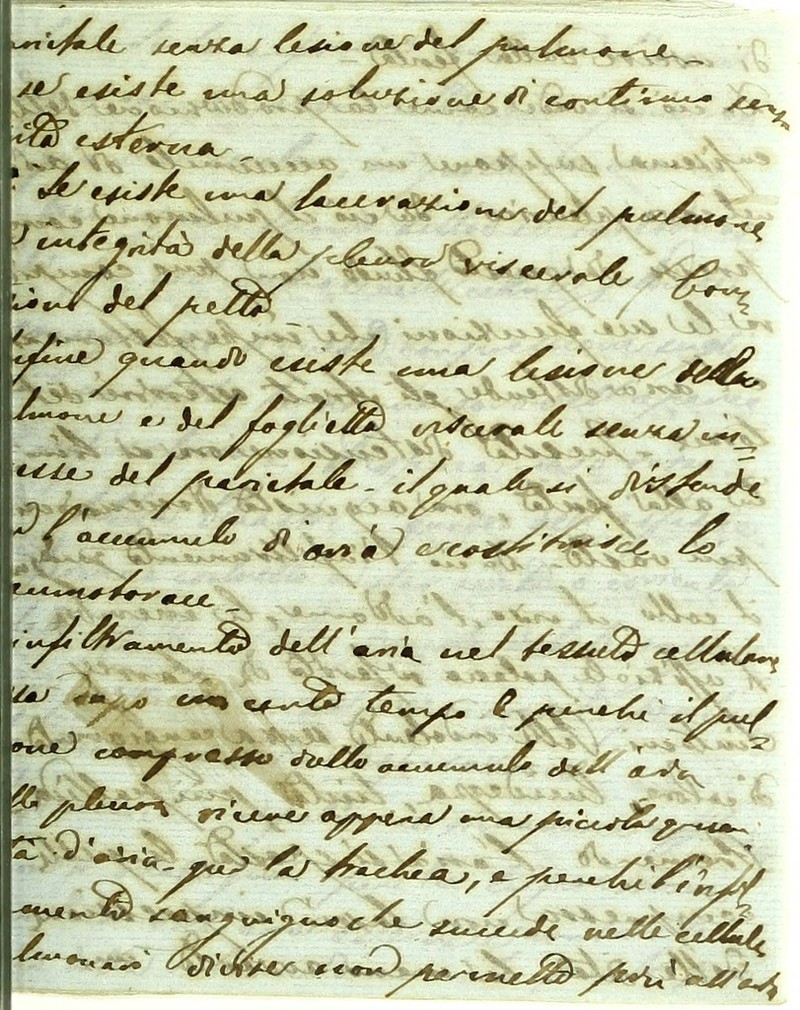 arietale senza lesione del pulmone -
se esiste una soluzione di continuo senz
ità esterna -
Se esiste una lacerazione del pulmone
integrità della pleura viscerale Con=
zioni del petto
nfine quando esiste una lesione della
lmone e del foglietto viscerale senza in=
esse del parietale - il quale si distende
l'accumulo di aria e costituisce lo
eumotorace -
infiltramento dell'aria nel tessuto cellulare
sa dopo un certo tempo è perchè il pul=
one compresso dallo accumulo dell'aria
lla pleura riceve appena una piccola quan
tà d'aria per la trachea, e perchè l'infil=
mento sanguigno che succede nelle cellule
lmonari divise non permette più all'aria